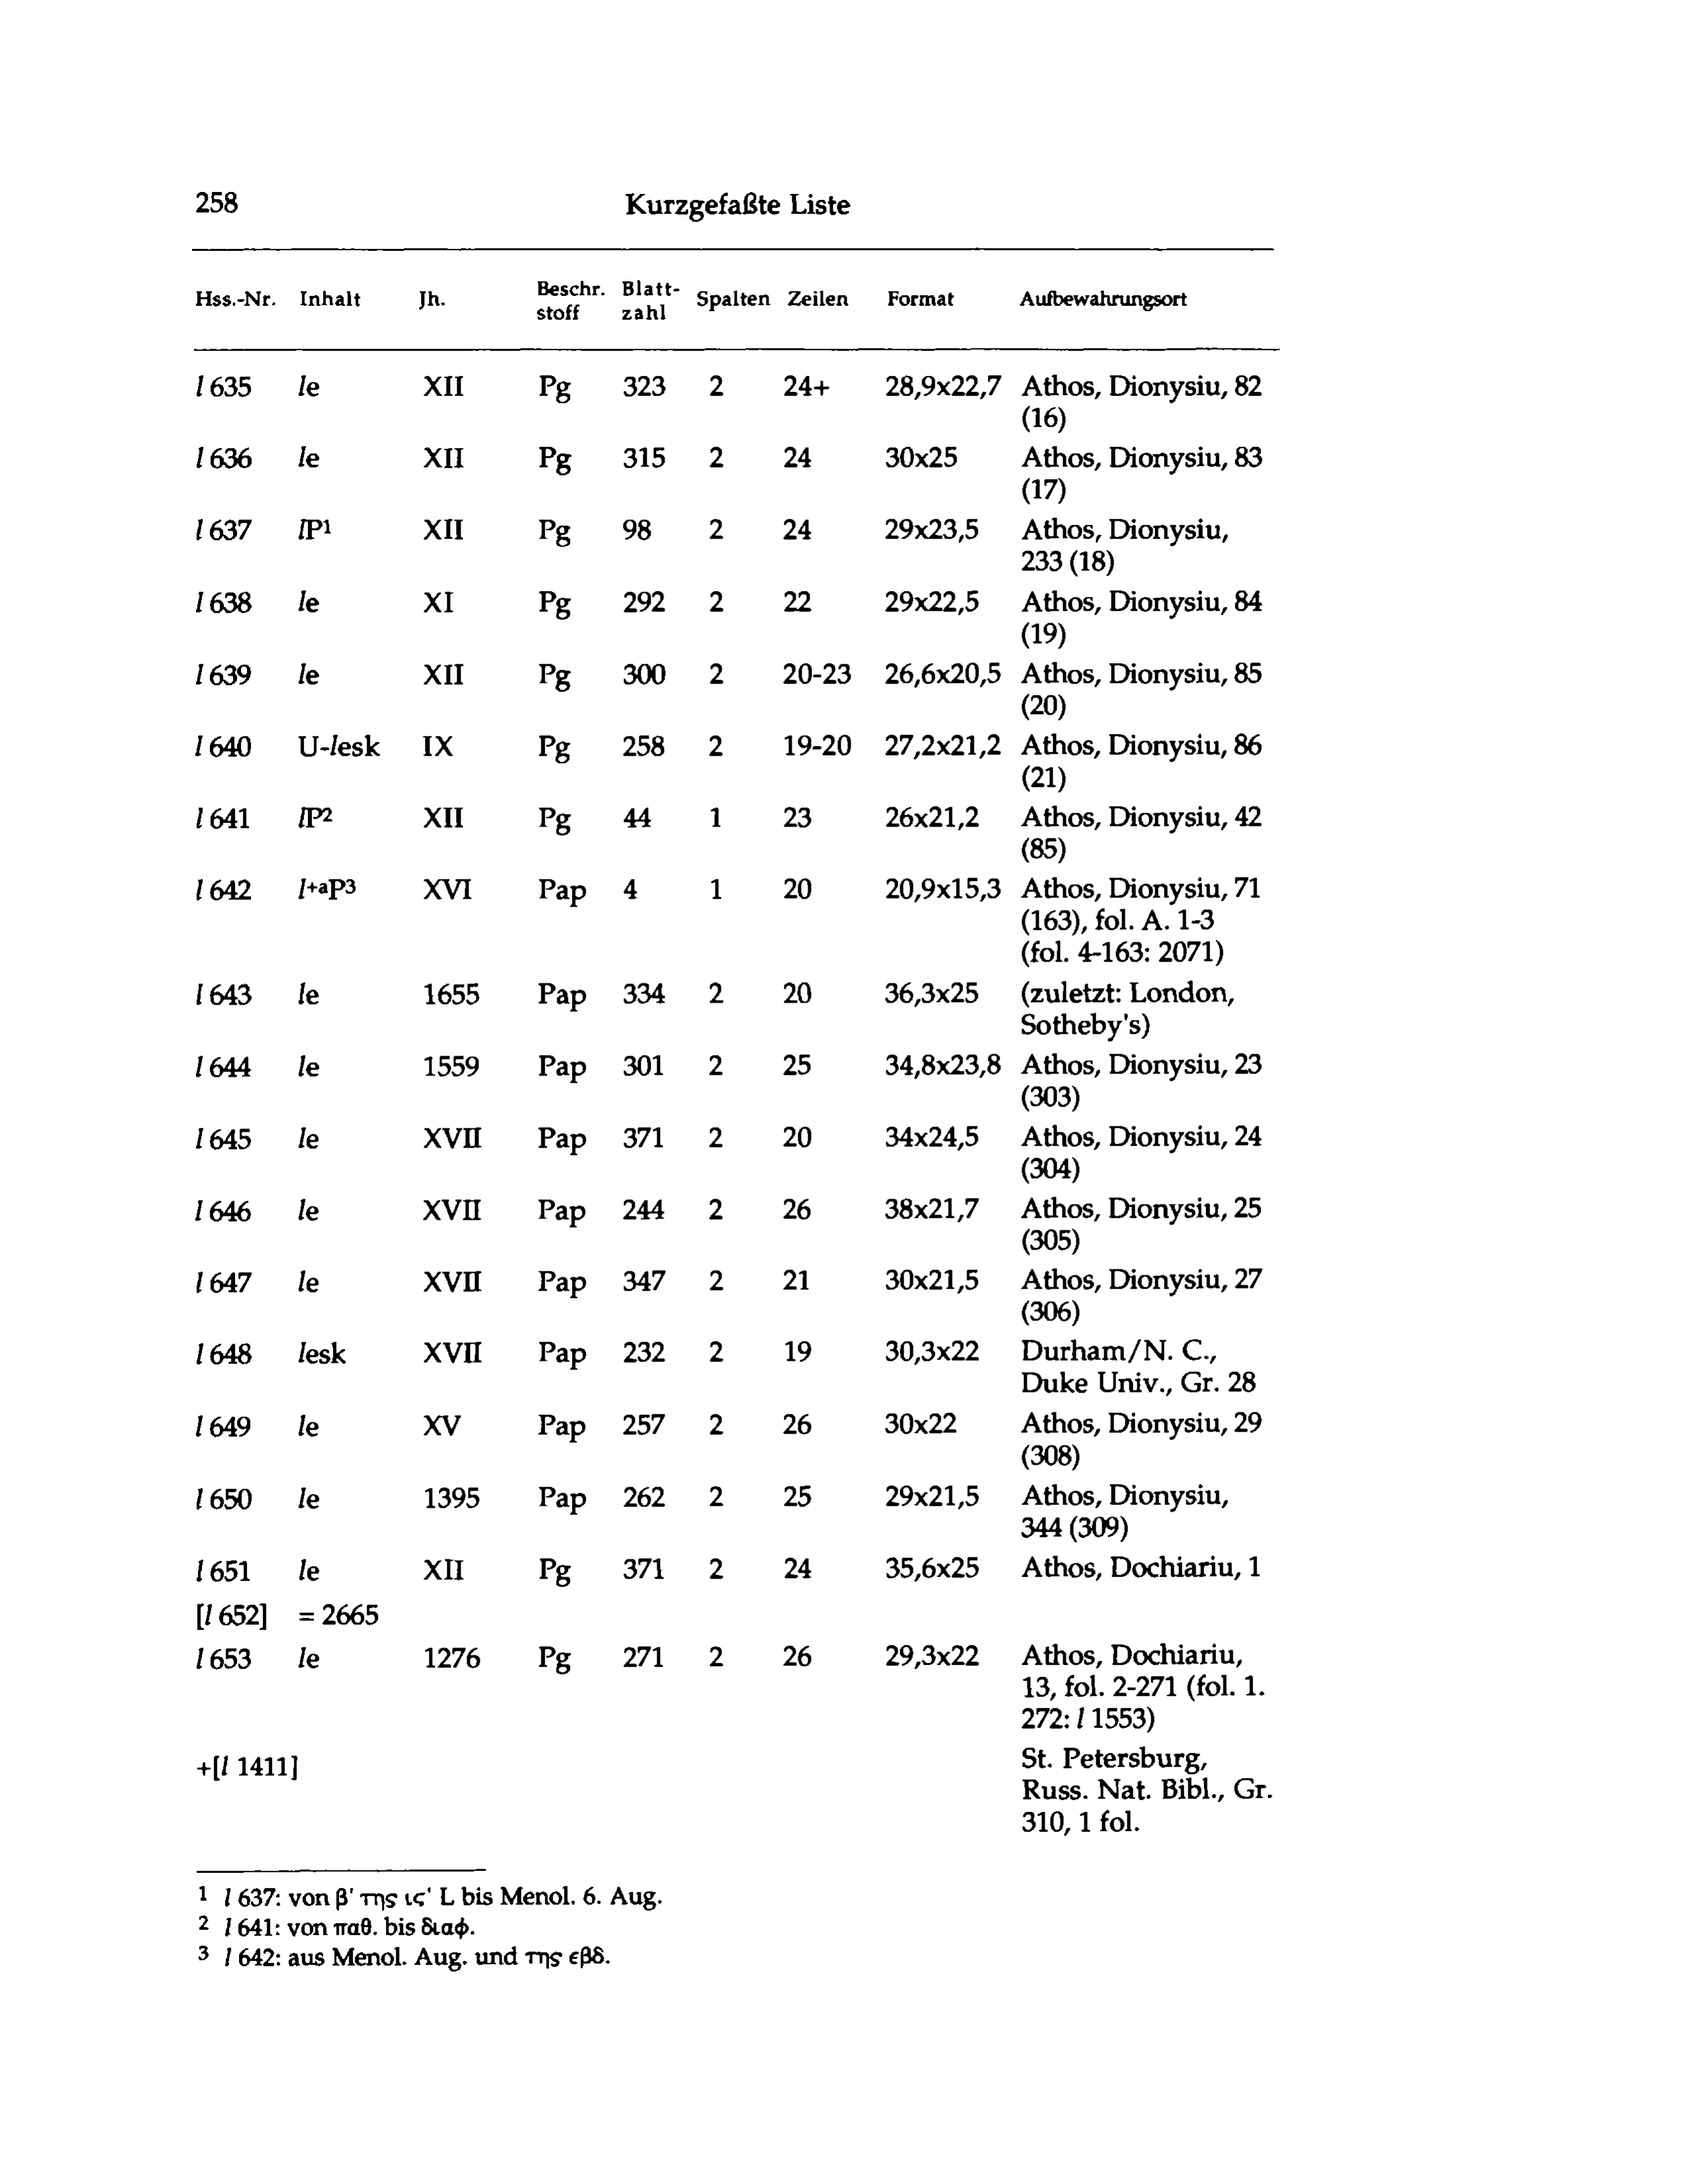 258 Kurzgefaßte Liste
Hss.-Nr. Inhalt Jh. Beschr. Blatt- Spalten Zeilen Format Aufbewahrungsort
stoff zahl
l 635 le XII Pg 323 2 24+ 28,9x22,7 Athos, Dionysiu, 82
(16)
l 636 le XII Pg 315 2 24 30x25 Athos, Dionysiu, 83
(17)
l 637 lP1 XII Pg 98 2 24 29x23,5 Athos, Dionysiu,
233 (18)
l 638 le XI Pg 292 2 22 29x22,5 Athos, Dionysiu, 84
(19)
l 639 le XII Pg 300 2 20-23 26,6x20,5 Athos, Dionysiu, 85
(20)
l 640 U-lesk IX Pg 258 2 19-20 27,2x21,2 Athos, Dionysiu, 86
(21)
l 641 lP2 XII Pg 44 1 23 26x21,2 Athos, Dionysiu, 42
(85)
l 642 l+aP3 XVI Pap 4 1 20 20,9x15,3 Athos, Dionysiu, 71
(163), fol. A. 1-3
(fol. 4-163: 2071)
l 643 le 1655 Pap 334 2 20 36,3x25 (zuletzt: London,
Sotheby's)
l 644 le 1559 Pap 301 2 25 34,8x23,8 Athos, Dionysiu, 23
(303)
l 645 le XVII Pap 371 2 20 34x24,5 Athos, Dionysiu, 24
(304)
l 646 le XVII Pap 244 2 26 38x21,7 Athos, Dionysiu, 25
(305)
l 647 le XVII Pap 347 2 21 30x21,5 Athos, Dionysiu, 27
(306)
l 648 lesk XVII Pap 232 2 19 30,3x22 Durham/N. C.,
Duke Univ., Gr. 28
l 649 le XV Pap 257 2 26 30x22 Athos, Dionysiu, 29
(308)
l 650 le 1395 Pap 262 2 25 29x21,5 Athos, Dionysiu,
344 (309)
l 651 le XII Pg 371 2 24 35,6x25 Athos, Dochiariu, 1
[l 652] = 2665
l 653 le 1276 Pg 271 2 26 29,3x22 Athos, Dochiariu,
13, fol. 2-271 (fol. 1.
272: l 1553)
+[l 1411] St. Petersburg,
Russ. Nat. Bibl., Gr.
310, 1 fol.
1 l 637: von β' της ις' L bis Menol. 6. Aug.
2 l 641: von παθ. bis διαφ.
3 l 642: aus Menol. Aug. und της εβδ.